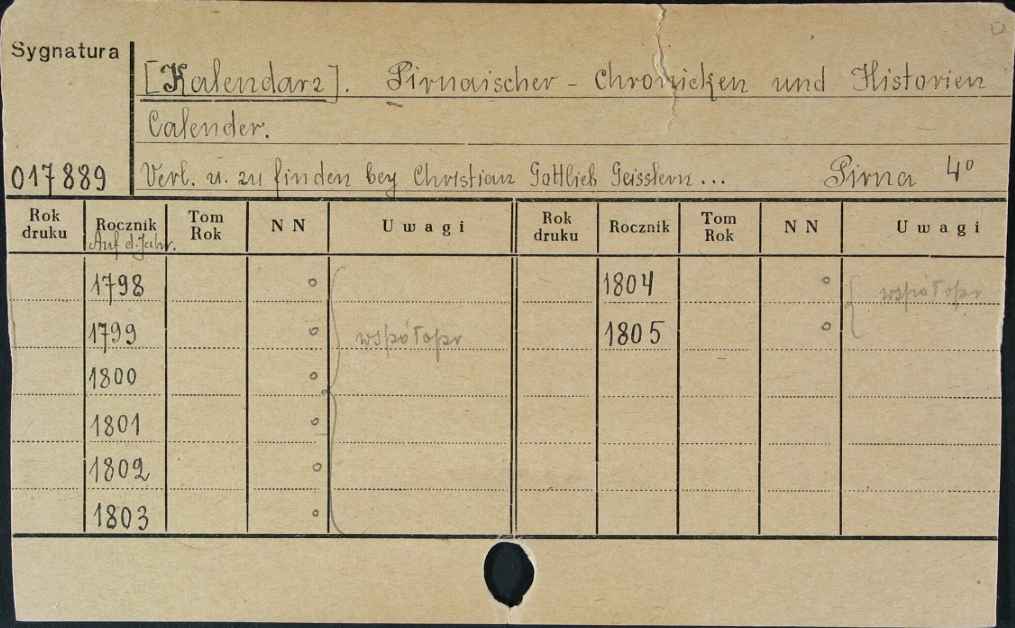 Sygnatura
[Kalendarz]. Pirnaischer - Chronicken und Historien
Calender.
017889 Verl. u. zu finden bey Christian Gottlieb Geisslern... Pirna 4°
Rok druku Rocznik Tom Rok N N Uwagi Rok druku Rocznik Tom Rok N N Uwagi
Auf d. Jahr.
1798 o 1804 o współopr
1799 o współopr 1805 o
1800 o
1801 o
1802 o
1803 o